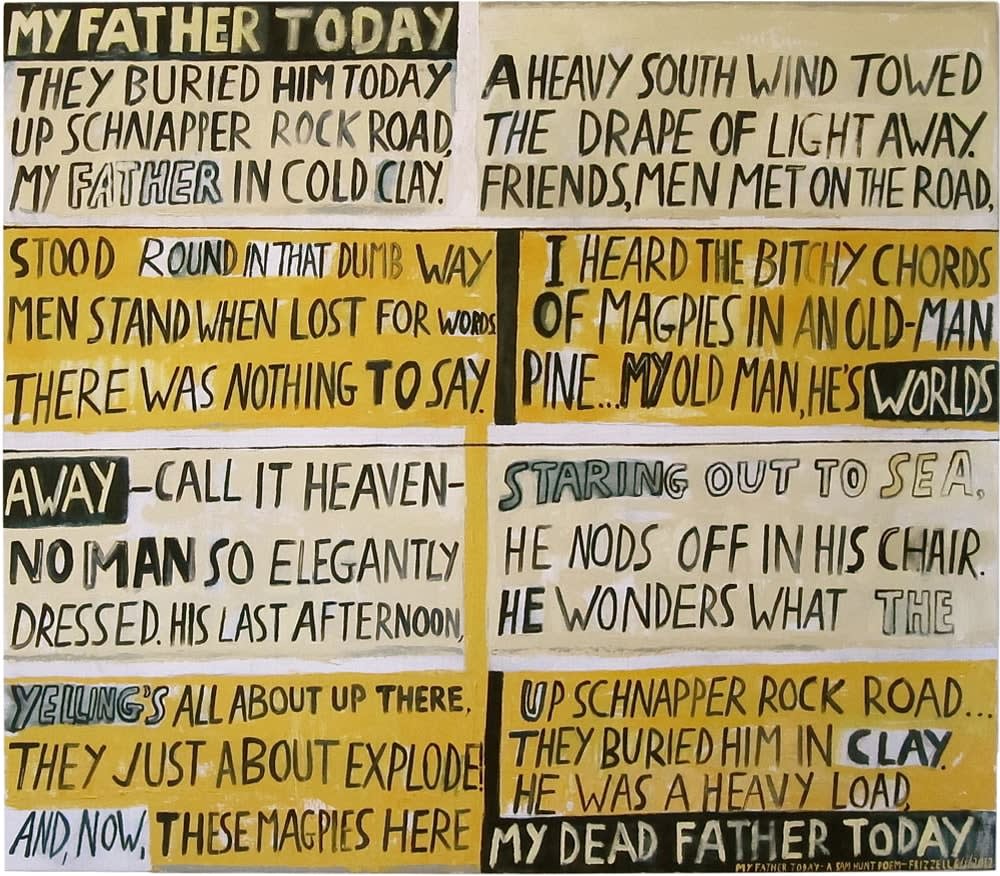 MY FATHER TODAY
THEY BURIED HIM TODAY
UP SCHNAPPER ROCK ROAD,
MY FATHER IN COLD CLAY.
A HEAVY SOUTH WIND TOWED
THE DRAPE OF LIGHT AWAY.
FRIENDS, MEN MET ON THE ROAD,
STOOD ROUND IN THAT DUMB WAY
MEN STAND WHEN LOST FOR WORDS
THERE WAS NOTHING TO SAY.
I HEARD THE BITCHY CHORDS
OF MAGPIES IN AN OLD-MAN
PINE... MY OLD MAN, HE'S WORLDS
AWAY - CALL IT HEAVEN -
NO MAN SO ELEGANTLY
DRESSED. HIS LAST AFTERNOON,
STARING OUT TO SEA,
HE NODS OFF IN HIS CHAIR.
HE WONDERS WHAT THE
YELLING'S ALL ABOUT UP THERE.
THEY JUST ABOUT EXPLODE!
AND, NOW, THESE MAGPIES HERE
UP SCHNAPPER ROCK ROAD...
THEY BURIED HIM IN CLAY.
HE WAS A HEAVY LOAD,
MY DEAD FATHER TODAY
MY FATHER TODAY - A SAM HUNT POEM - FRIZZELL